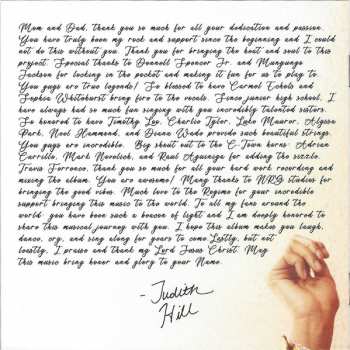 Mom and Dad, thank you so much for all your dedication and passion.
You have truly been my rock and support since the beginning and I could
not do this without you. Thank you for bringing the heart and soul to this
project. Special thanks to Donnell Spencer Jr. and Mangungu
Jackson for locking in the pocket and making it fun for us to play to.
You guys are true legends! So blessed to have Carmel Echols and
Sophia Whitehurst bring fire to the vocals. Since junior high school, I
have always had so much fun singing with you incredibly talented sisters.
So honored to have Timothy Loo, Charlie Tyler, Luke Maurer, Alyssa
Park, Noel Hammond, and Diana Wade provide such beautiful strings.
You guys are incredible. Big shout out to the C-Town horns: Adrian
Carrillo, Mark Novelich, and Raul Aguiniga for adding the sizzle.
Travis Ference, thank you so much for all your hard work recording and
mixing the album. You are awesome! Many thanks to NRG studios for
bringing the good vibes. Much love to the Regime for your incredible
support bringing this music to the world. To all my fans around the
world, you have been such a beacon of light and I am deeply honored to
share this musical journey with you. I hope this album makes you laugh,
dance, cry, and sing along for years to come. Lastly, but not
leastly, I praise and thank my Lord Jesus Christ. May
this music bring honor and glory to your Name.
- Judith
Hill